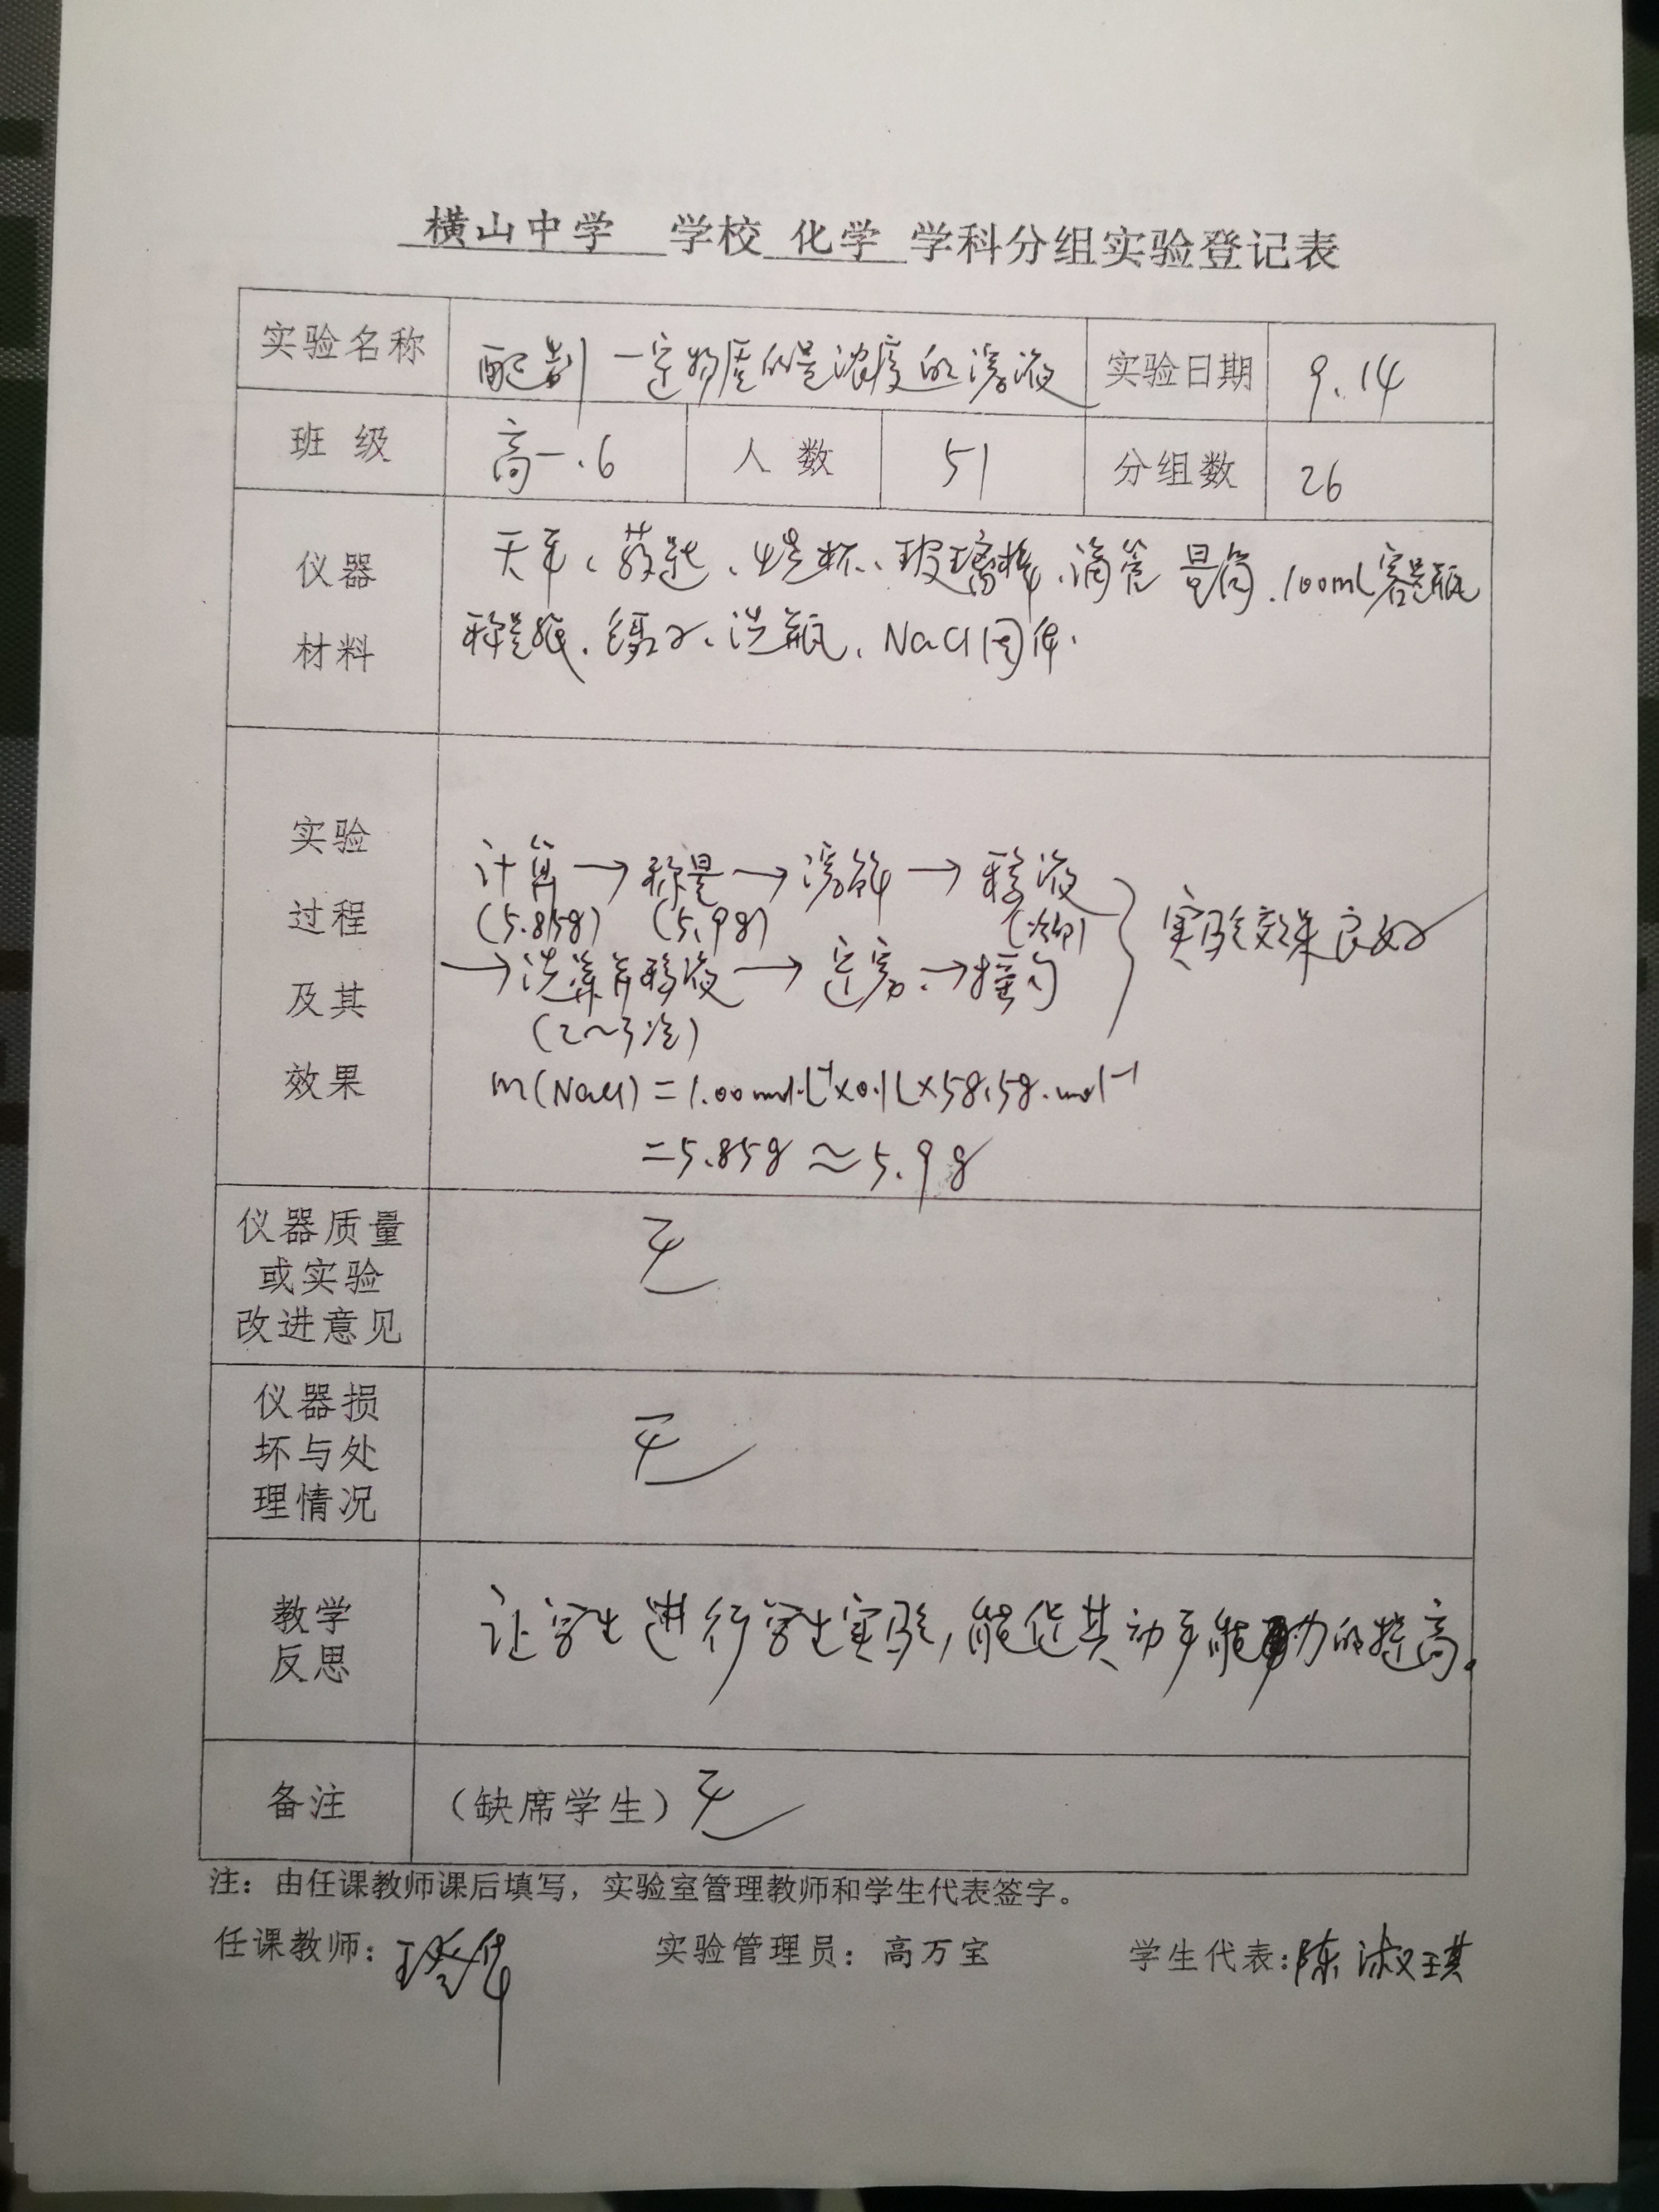 横山中学 学校 化学 学科分组实验登记表
实验名称 配制一定物质的量浓度的溶液 实验日期 9.14
班级 高一.6 人数 51 分组数 26
仪器
材料
天平、药匙、烧杯、玻璃棒、滴管 量筒.100mL容量瓶
称量纸.镊子、洗瓶、NaCl固体.
实验
过程
及其
效果
计算→称量→溶解→移液
(5.85g) (5.9g) (冷却)
→洗涤并移液→定容→摇匀
(2~3次)
实验效果良好
m(NaCl)=1.00mol·L⁻¹×0.1L×58.5g.mol⁻¹
=5.85g≈5.9g
仪器质量
或实验
改进意见
无
仪器损
坏与处
理情况
无
教学
反思
让学生进行学生实验,能促其动手能力的提高。
备注 (缺席学生) 无
注：由任课教师课后填写，实验室管理教师和学生代表签字。
任课教师： 实验管理员：高万宝 学生代表:陈淑琪